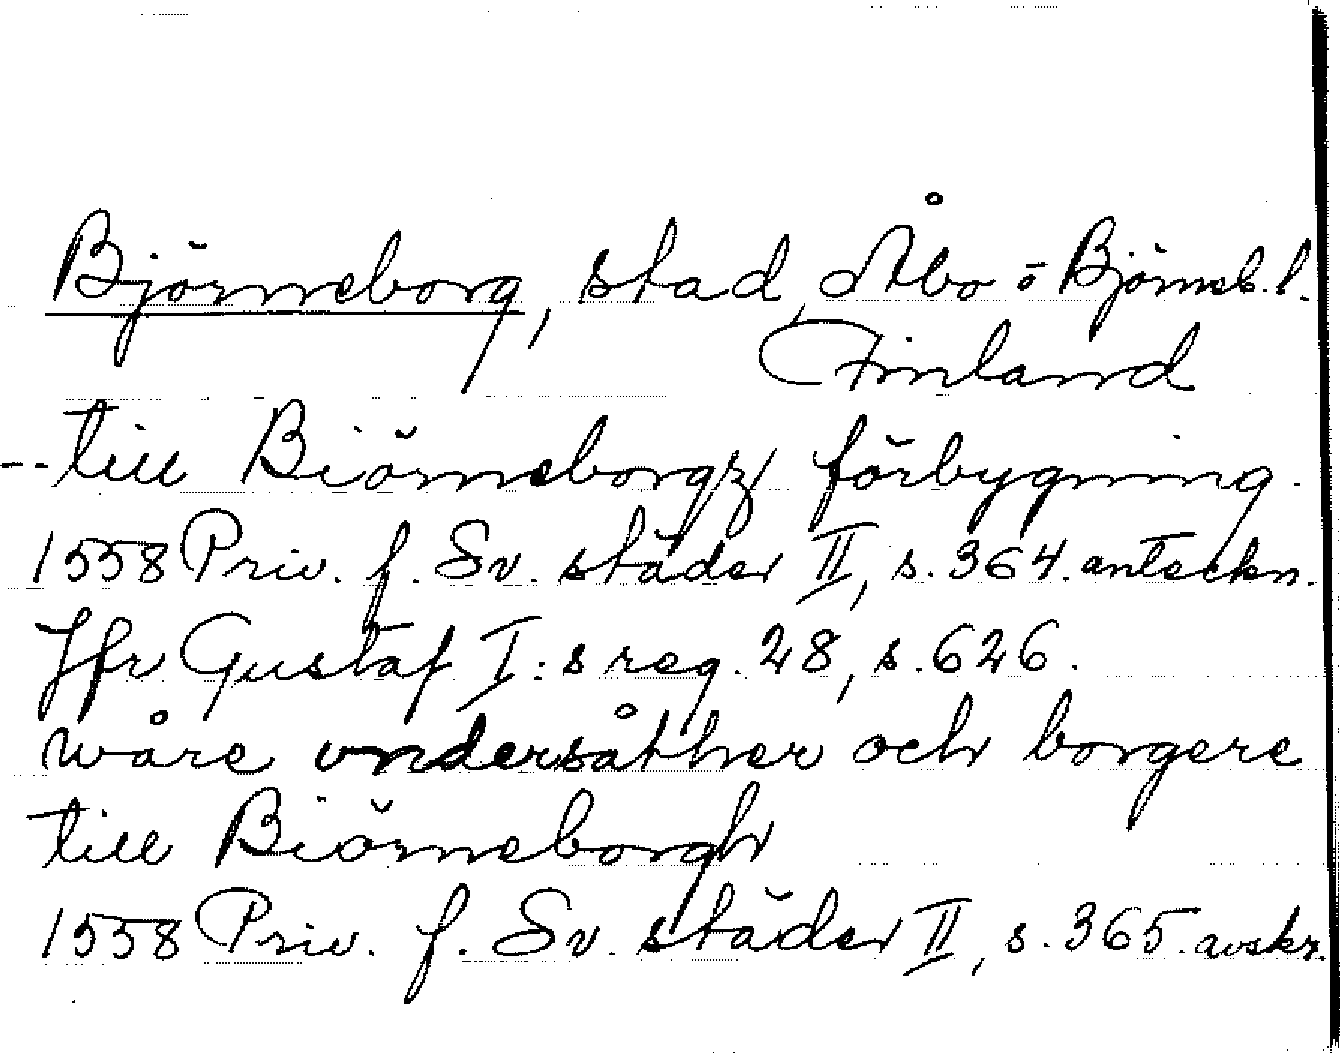 Björneborg, stad, Åbo o Björneb. l.
Finland
-- till Biörneborgz förbygning.
1558 Priv. f. Sv. städer II, s. 364. anteckn.
Jfr Gustaf I:s reg. 28, s. 626.
wåre undersåther och borgere
till Biörneborgh
1558 Priv. f. Sv. städer II, s. 365. avskr.